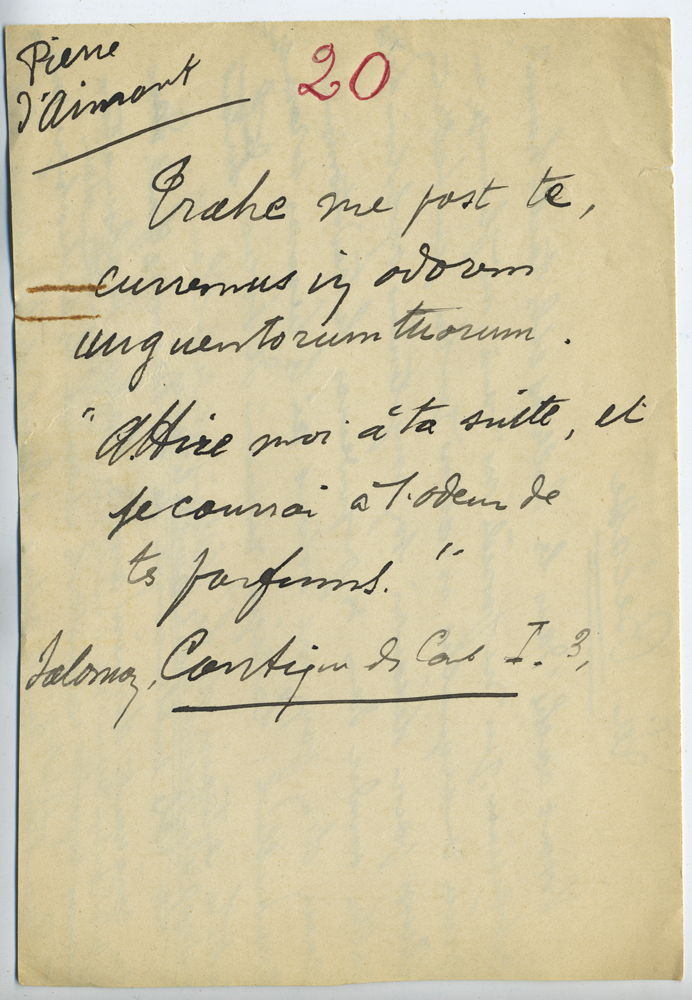 Pierre
d'Aimont
20
Trahe me post te,
curremus in odorem
unguentorum tuorum.
"Attire moi à ta suite, et
je courrai à l'odeur de
ts parfums."
Salomon, Cantique ds Cant I. 3,